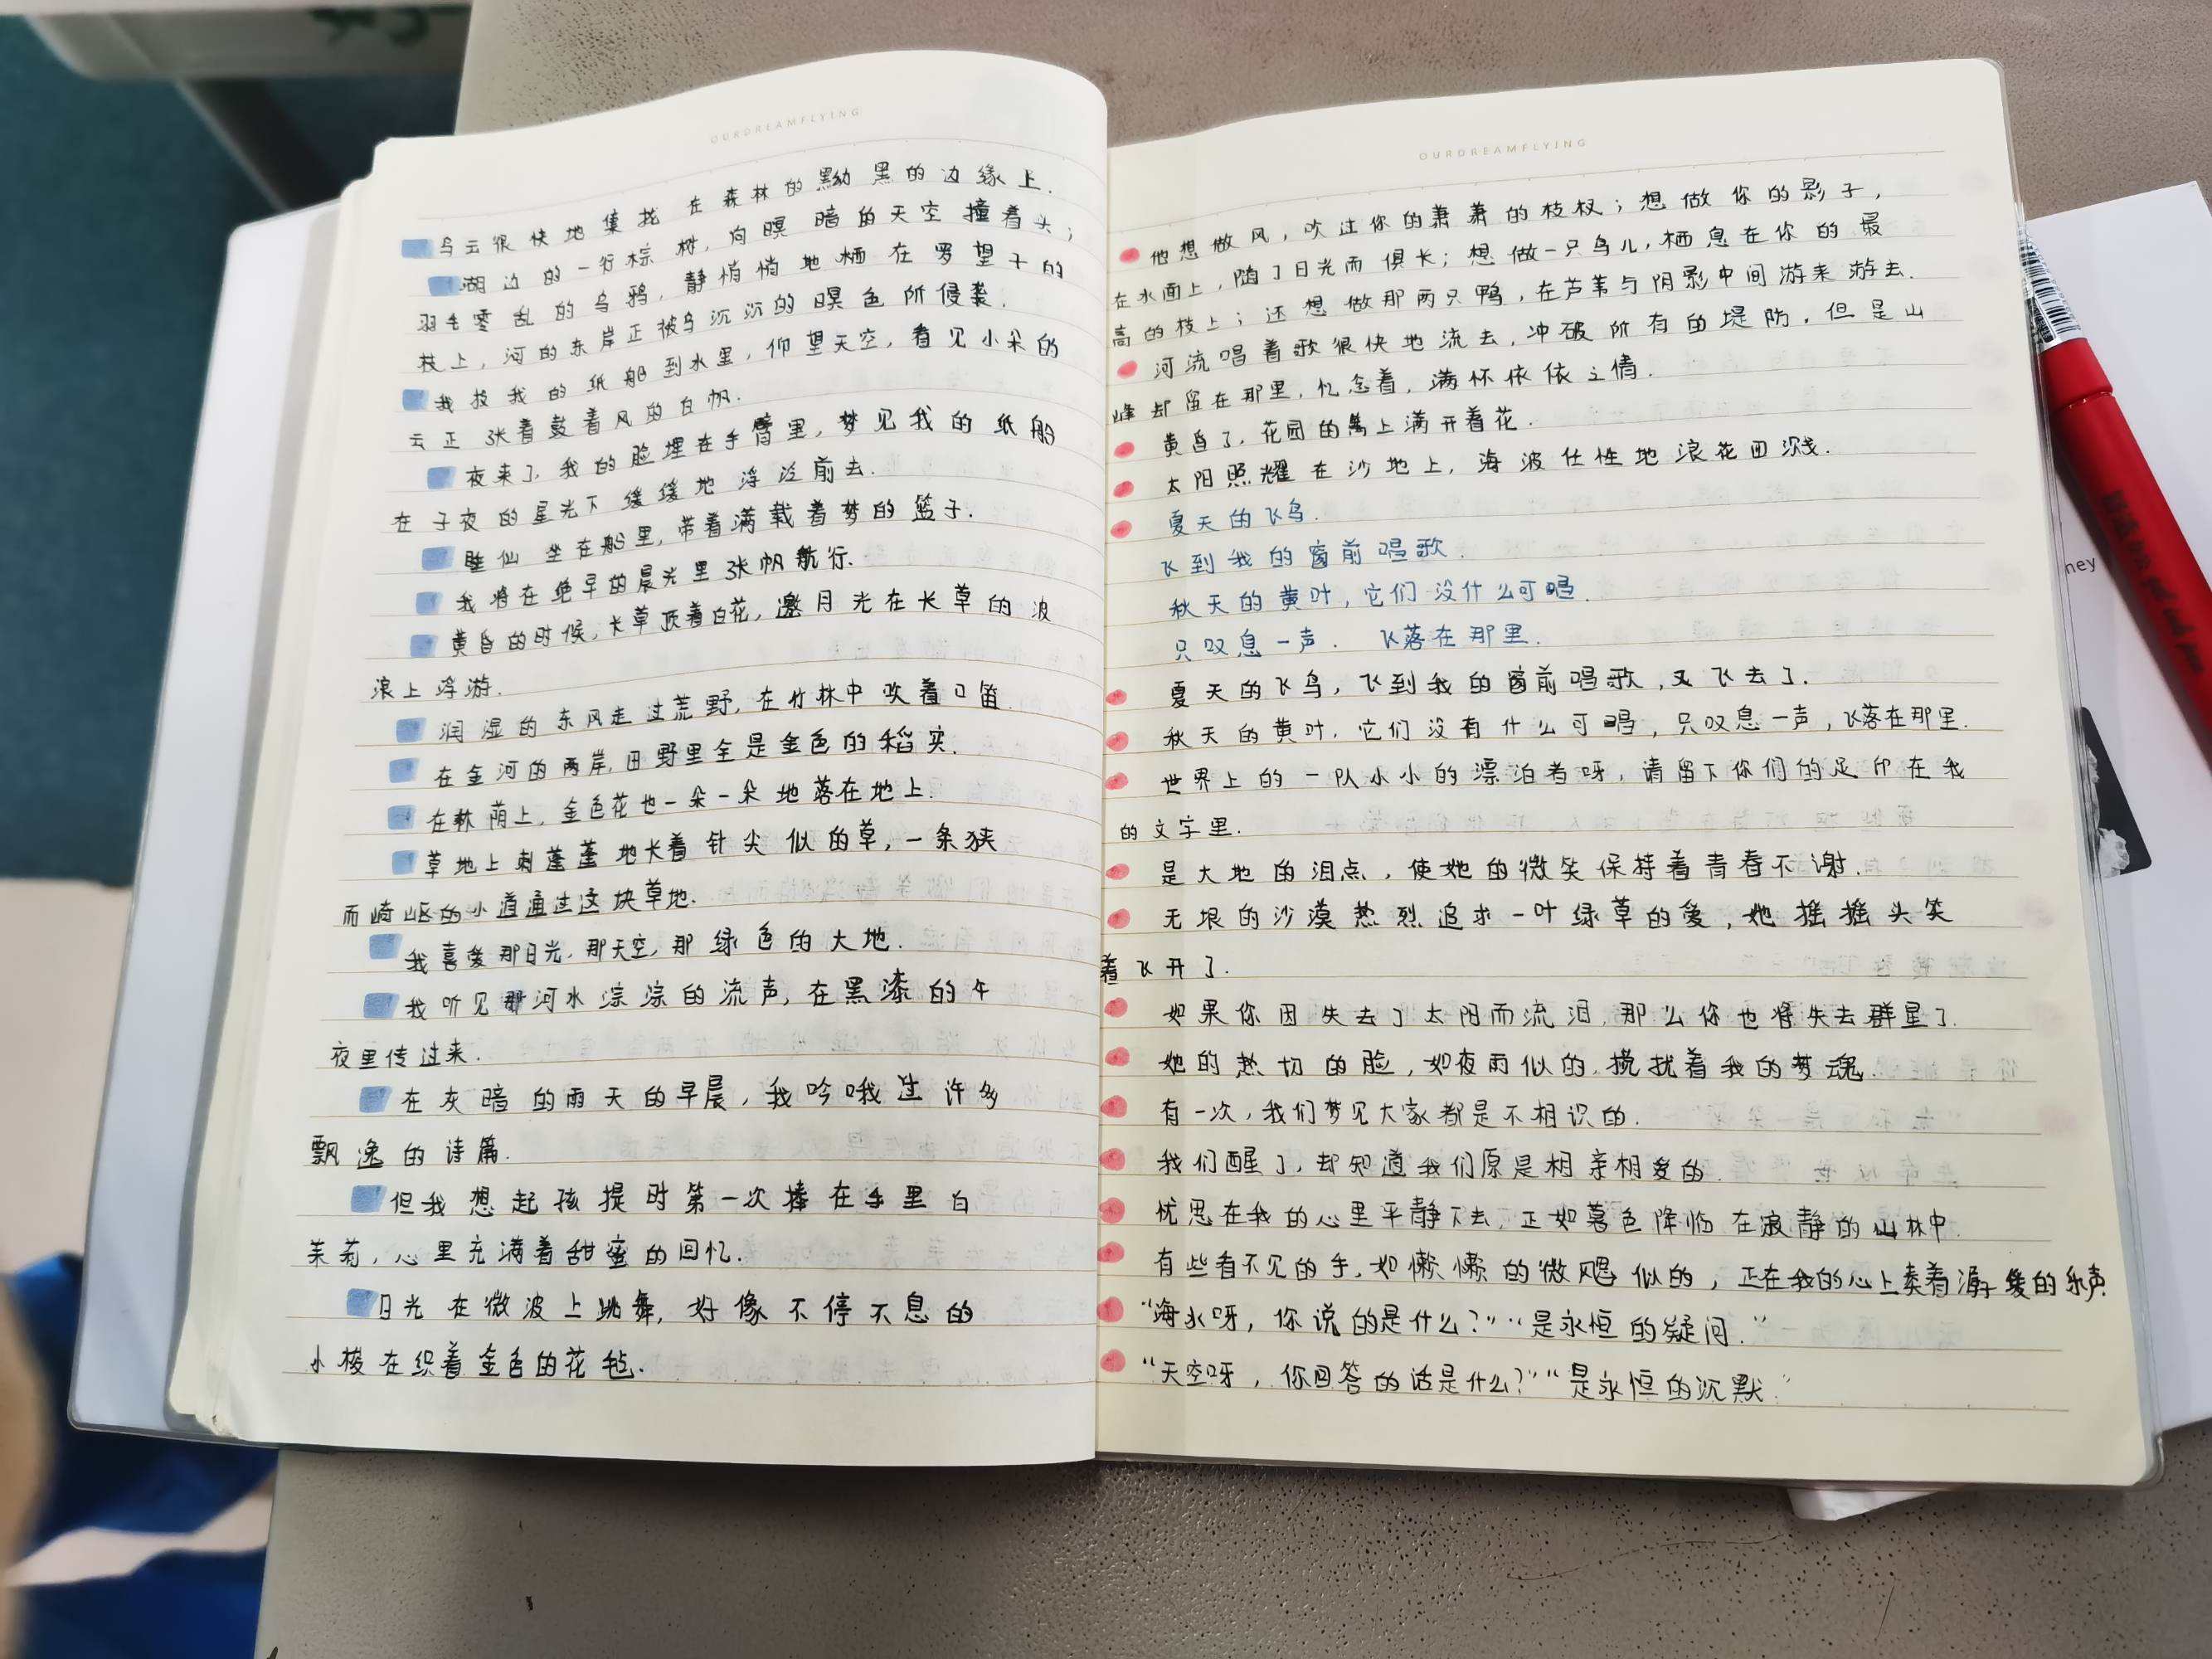 OURDREAMFLYING
乌云很快地集拢在森林的黝黑的边缘上.
湖边的一行棕树,向暝暗的天空撞着头;
羽毛零乱的乌鸦,静悄悄地栖在罗望子的
枝上,河的东岸正被乌沉沉的暝色所侵袭.
我投我的纸船到水里,仰望天空,看见小朵的
云正张着鼓着风的白帆.
夜来了,我的脸埋在手臂里,梦见我的纸船
在子夜的星光下缓缓地浮泛前去.
睡仙坐在船里,带着满载着梦的篮子.
我将在绝早的晨光里张帆航行.
黄昏的时候,长草顶着白花,邀月光在长草的波
浪上浮游.
润湿的东风走过荒野,在竹林中吹着口笛.
在金河的两岸,田野里全是金色的稻实.
在林荫上,金色花也一朵一朵地落在地上.
草地上刺蓬蓬地长着针尖似的草,一条狭
而崎岖的小道通过这块草地.
我喜爱那日光,那天空,那绿色的大地.
我听见那河水淙淙的流声,在黑漆的午
夜里传过来.
在灰暗的雨天的早晨,我吟哦过许多
飘逸的诗篇.
但我想起孩提时第一次捧在手里白
茉莉,心里充满着甜蜜的回忆.
日光在微波上跳舞,好像不停不息的
小梭在织着金色的花毡.
OURDREAMFLYING
他想做风,吹过你的萧萧的枝杈;想做你的影子,
在水面上,随了日光而俱长;想做一只鸟儿,栖息在你的最
高的枝上;还想做那两只鸭,在芦苇与阴影中间游来游去.
河流唱着歌很快地流去,冲破所有的堤防.但是山
峰却留在那里,忆念着,满怀依依之情.
黄昏了,花园的篱上满开着花.
太阳照耀在沙地上,海波任性地浪花四溅.
夏天的飞鸟.
飞到我的窗前唱歌.
秋天的黄叶,它们没什么可唱.
只叹息一声. 飞落在那里.
夏天的飞鸟,飞到我的窗前唱歌,又飞去了.
秋天的黄叶,它们没有什么可唱,只叹息一声,飞落在那里.
世界上的一队小小的漂泊者呀,请留下你们的足印在我
的文字里.
是大地的泪点,使她的微笑保持着青春不谢.
无垠的沙漠热烈追求一叶绿草的爱,她摇摇头笑
着飞开了.
如果你因失去了太阳而流泪,那么你也将失去群星了.
她的热切的脸,如夜雨似的,搅扰着我的梦魂.
有一次,我们梦见大家都是不相识的.
我们醒了,却知道我们原是相亲相爱的.
忧思在我的心里平静下去,正如暮色降临在寂静的山林中.
有些看不见的手,如懒懒的微飔似的,正在我的心上奏着潺缓的乐声.
“海水呀,你说的是什么?”“是永恒的疑问.”
“天空呀,你回答的话是什么?”“是永恒的沉默.”
ney